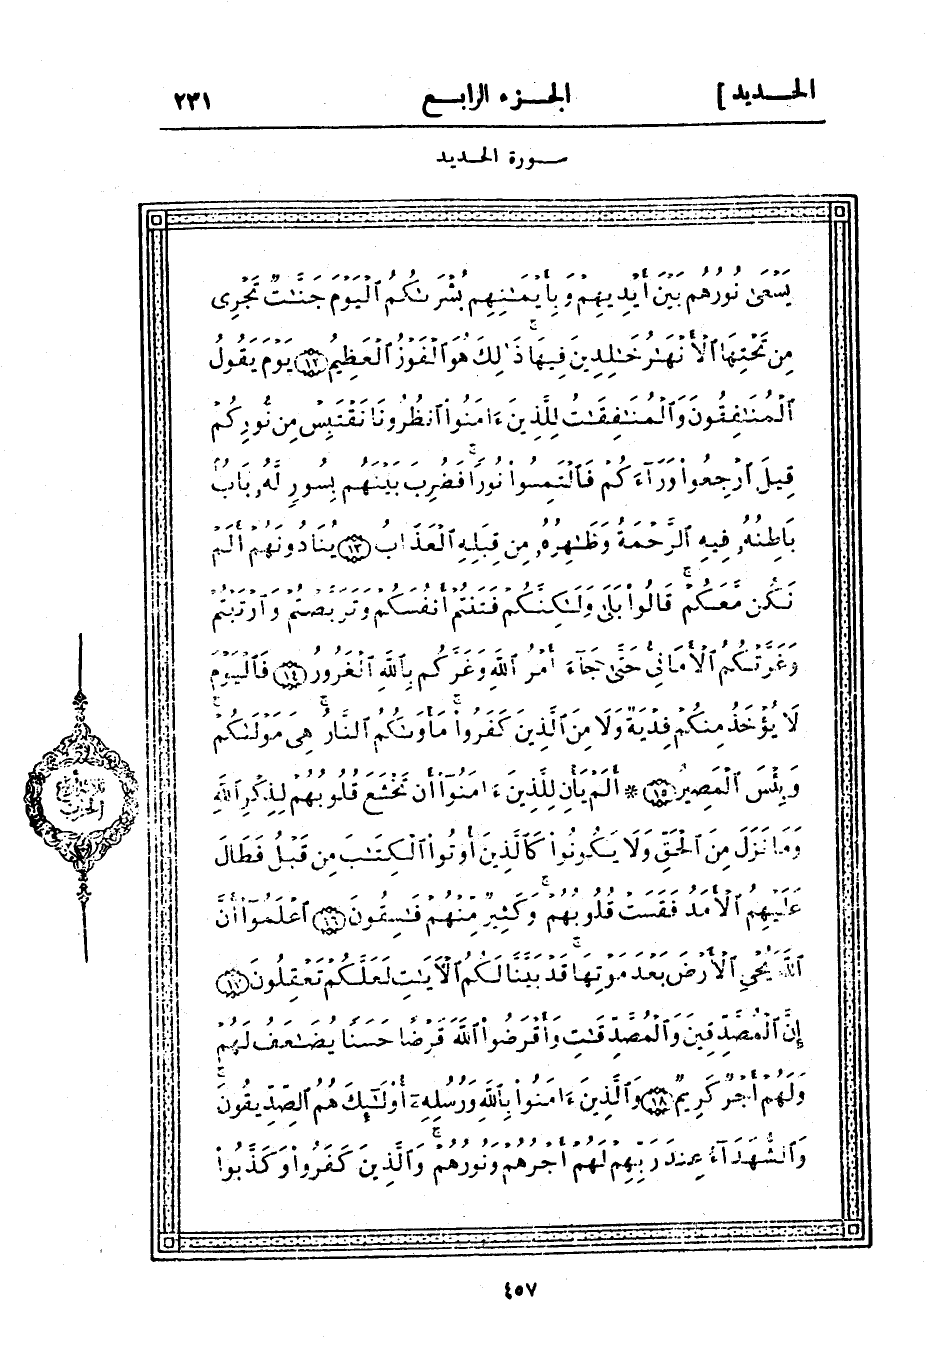 الحـديد ]
الجـزء الرابـع
٢٣١
سـورة الحديد
يَسْعَىٰ نُورُهُم بَيْنَ أَيْدِيهِمْ وَبِأَيْمَـٰنِهِم بُشْرَىٰكُمُ ٱلْيَوْمَ جَنَّـٰتٌ تَجْرِى
مِن تَحْتِهَا ٱلْأَنْهَـٰرُ خَـٰلِدِينَ فِيهَا ۚ ذَٰلِكَ هُوَ ٱلْفَوْزُ ٱلْعَظِيمُ ﴿١٢﴾ يَوْمَ يَقُولُ
ٱلْمُنَـٰفِقُونَ وَٱلْمُنَـٰفِقَـٰتُ لِلَّذِينَ ءَامَنُوا۟ ٱنظُرُونَا نَقْتَبِسْ مِن نُّورِكُمْ
قِيلَ ٱرْجِعُوا۟ وَرَآءَكُمْ فَٱلْتَمِسُوا۟ نُورًا ۖ فَضُرِبَ بَيْنَهُم بِسُورٍ لَّهُۥ بَابٌۢ
بَاطِنُهُۥ فِيهِ ٱلرَّحْمَةُ وَظَـٰهِرُهُۥ مِن قِبَلِهِ ٱلْعَذَابُ ﴿١٣﴾ يُنَادُونَهُمْ أَلَمْ
نَكُن مَّعَكُمْ ۖ قَالُوا۟ بَلَىٰ وَلَـٰكِنَّكُمْ فَتَنتُمْ أَنفُسَكُمْ وَتَرَبَّصْتُمْ وَٱرْتَبْتُمْ
وَغَرَّتْكُمُ ٱلْأَمَانِىُّ حَتَّىٰ جَآءَ أَمْرُ ٱللَّهِ وَغَرَّكُم بِٱللَّهِ ٱلْغَرُورُ ﴿١٤﴾ فَٱلْيَوْمَ
لَا يُؤْخَذُ مِنكُمْ فِدْيَةٌ وَلَا مِنَ ٱلَّذِينَ كَفَرُوا۟ ۚ مَأْوَىٰكُمُ ٱلنَّارُ ۖ هِىَ مَوْلَىٰكُمْ ۖ
وَبِئْسَ ٱلْمَصِيرُ ﴿١٥﴾ * أَلَمْ يَأْنِ لِلَّذِينَ ءَامَنُوٓا۟ أَن تَخْشَعَ قُلُوبُهُمْ لِذِكْرِ ٱللَّهِ
وَمَا نَزَلَ مِنَ ٱلْحَقِّ وَلَا يَكُونُوا۟ كَٱلَّذِينَ أُوتُوا۟ ٱلْكِتَـٰبَ مِن قَبْلُ فَطَالَ
عَلَيْهِمُ ٱلْأَمَدُ فَقَسَتْ قُلُوبُهُمْ ۖ وَكَثِيرٌ مِّنْهُمْ فَـٰسِقُونَ ﴿١٦﴾ ٱعْلَمُوٓا۟ أَنَّ
ٱللَّهَ يُحْىِ ٱلْأَرْضَ بَعْدَ مَوْتِهَا ۚ قَدْ بَيَّنَّا لَكُمُ ٱلْـَٔايَـٰتِ لَعَلَّكُمْ تَعْقِلُونَ ﴿١٧﴾
إِنَّ ٱلْمُصَّدِّقِينَ وَٱلْمُصَّدِّقَـٰتِ وَأَقْرَضُوا۟ ٱللَّهَ قَرْضًا حَسَنًا يُضَـٰعَفُ لَهُمْ
وَلَهُمْ أَجْرٌ كَرِيمٌ ﴿١٨﴾ وَٱلَّذِينَ ءَامَنُوا۟ بِٱللَّهِ وَرُسُلِهِۦٓ أُو۟لَـٰٓئِكَ هُمُ ٱلصِّدِّيقُونَ ۖ
وَٱلشُّهَدَآءُ عِندَ رَبِّهِمْ لَهُمْ أَجْرُهُمْ وَنُورُهُمْ ۖ وَٱلَّذِينَ كَفَرُوا۟ وَكَذَّبُوا۟
٤٥٧